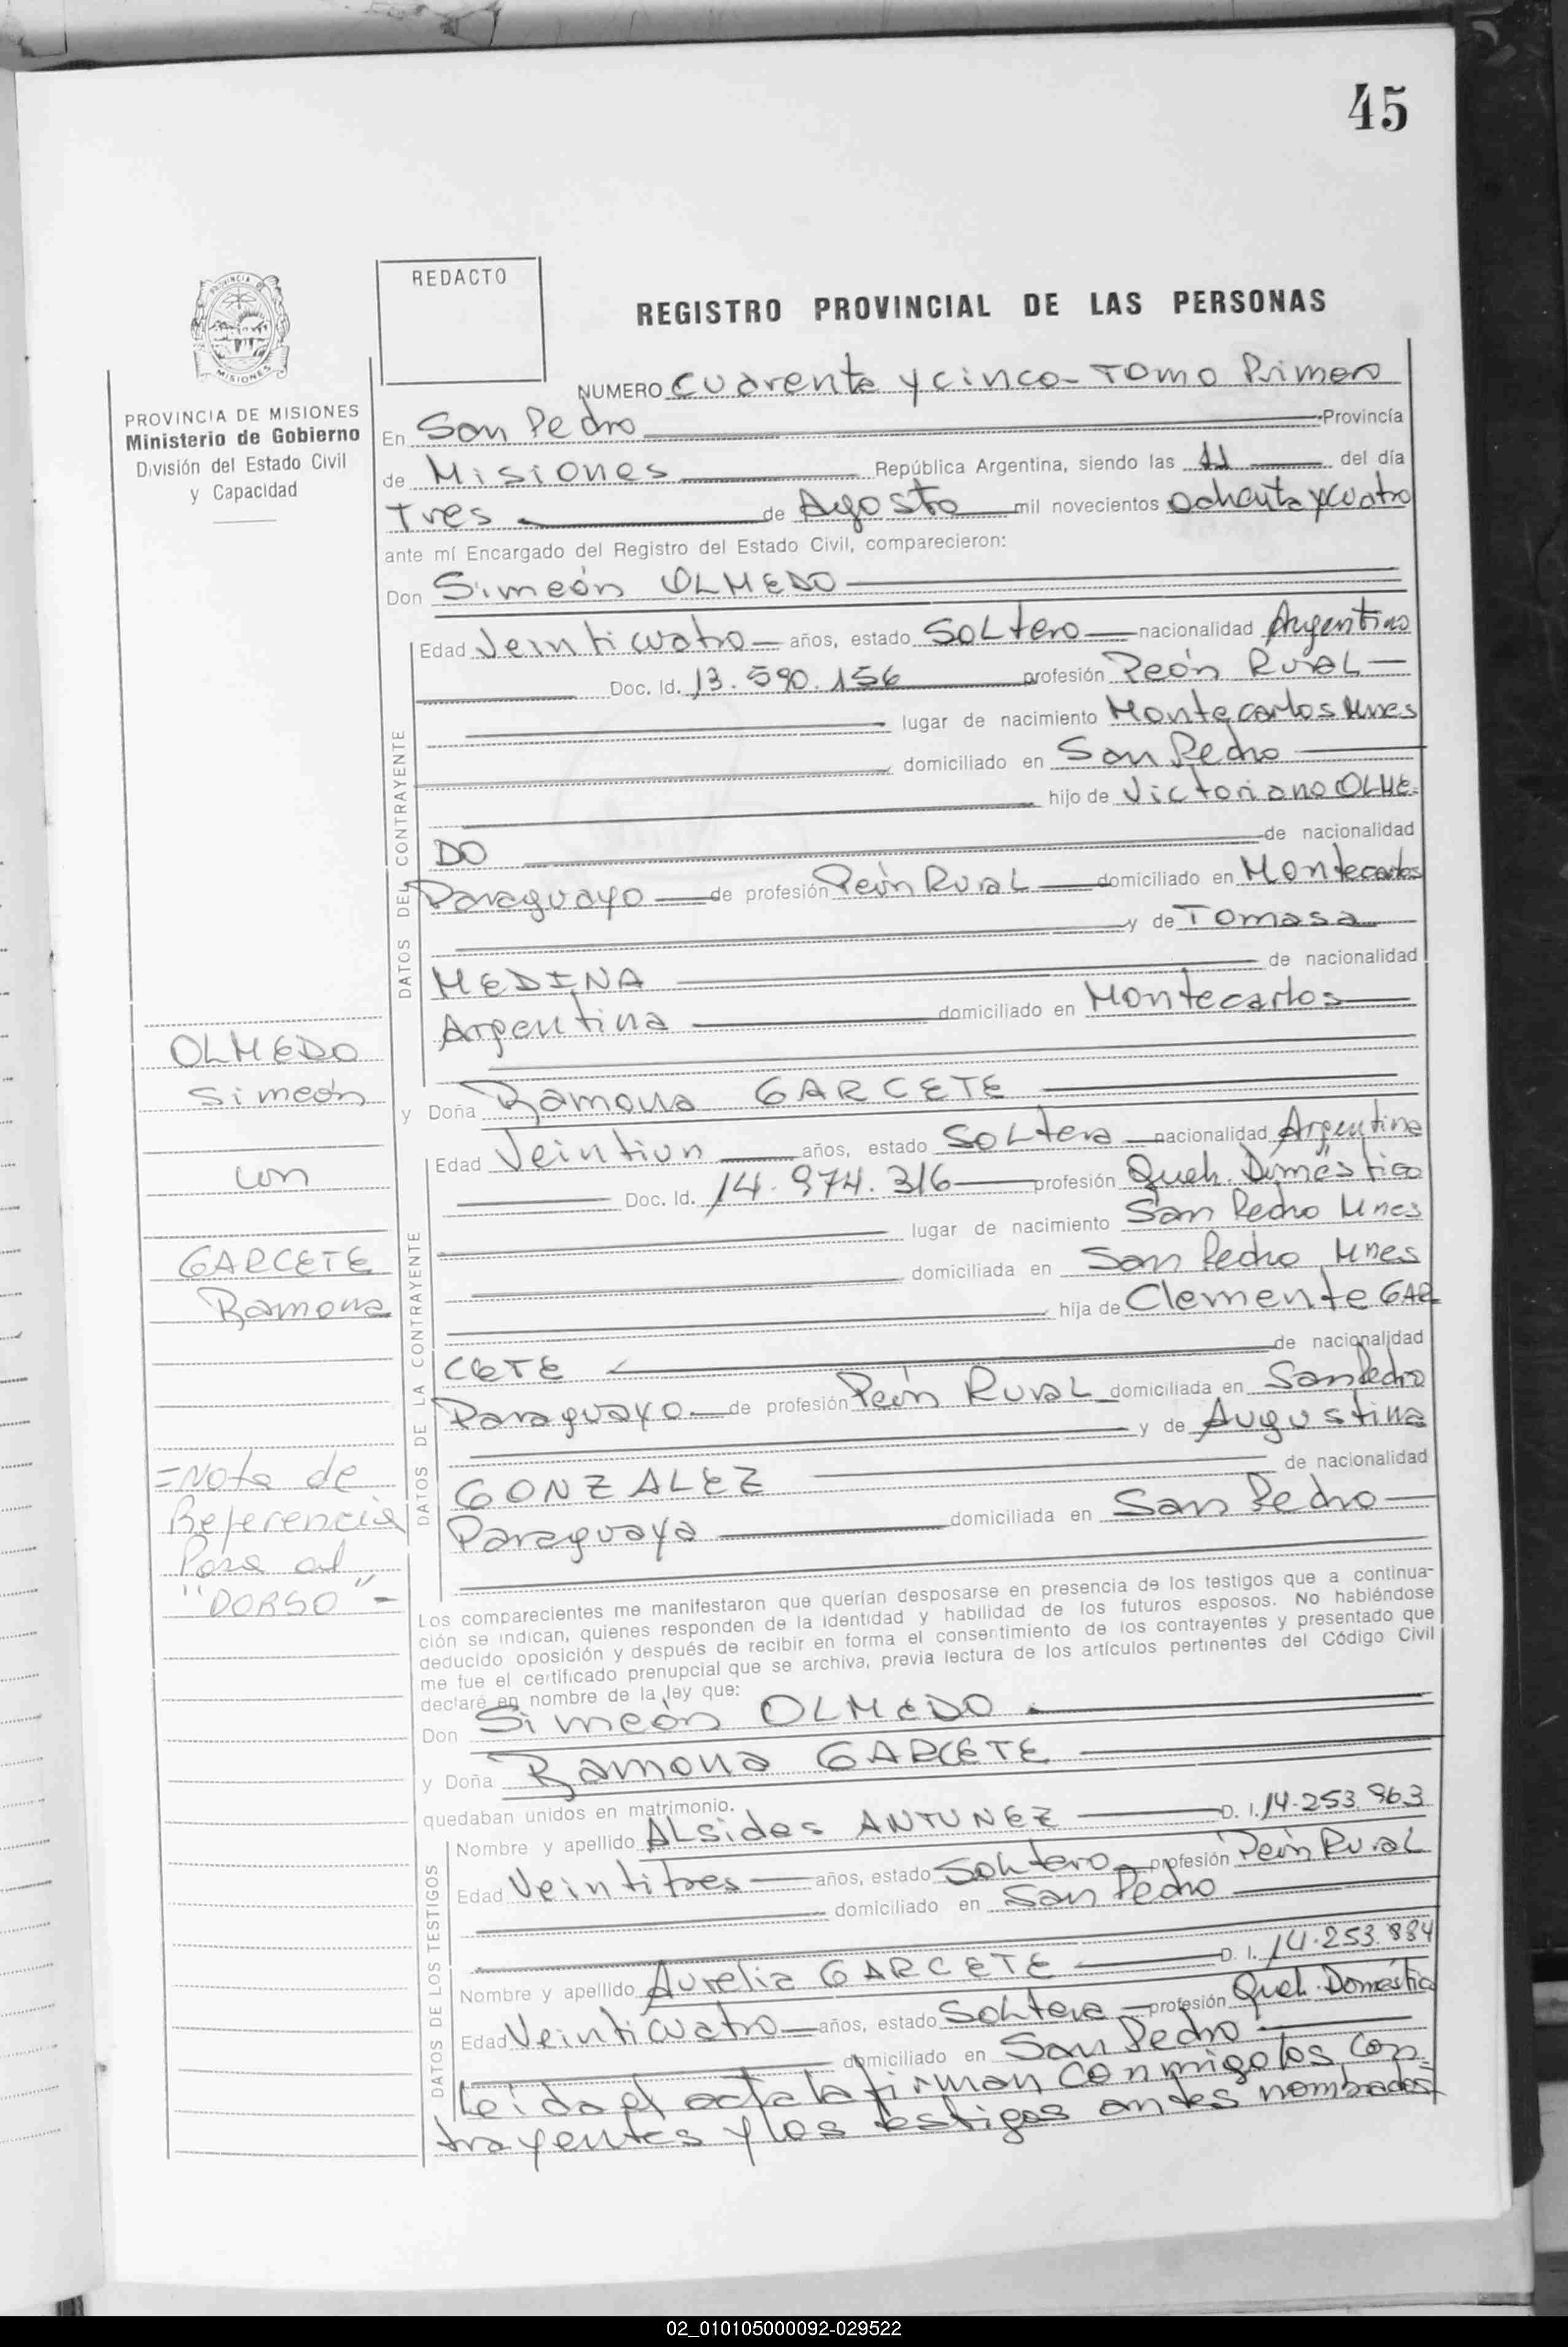 45
PROVINCIA DE MISIONES
MISIONES
REDACTO
REGISTRO PROVINCIAL DE LAS PERSONAS
PROVINCIA DE MISIONES
Ministerio de Gobierno
División del Estado Civil
y Capacidad
NUMERO Cuarenta y cinco - Tomo Primero
En San Pedro Provincia
de Misiones República Argentina, siendo las 11 del día
Tres de Agosto mil novecientos Ochenta y cuatro
ante mí Encargado del Registro del Estado Civil, comparecieron:
Don Simeón OLMEDO
DATOS DEL CONTRAYENTE
Edad Veinticuatro años, estado Soltero nacionalidad Argentino
Doc. Id. 13.590.156 profesión Peón Rural
lugar de nacimiento Montecarlos Mnes
domiciliado en San Pedro
hijo de Victoriano OLME-
DO de nacionalidad
Paraguayo de profesión Peón Rural domiciliado en Montecarlos
y de Tomasa
MEDINA de nacionalidad
Argentina domiciliado en Montecarlos
y Doña Ramona GARCETE
DATOS DE LA CONTRAYENTE
Edad Veintiun años, estado Soltera nacionalidad Argentina
Doc. Id. 14.974.316 profesión Queh. Doméstico
lugar de nacimiento San Pedro Mnes
domiciliada en San Pedro Mnes
hija de Clemente GAR
CETE de nacionalidad
Paraguayo de profesión Peón Rural domiciliada en San Pedro
y de Augustina
GONZALEZ de nacionalidad
Paraguaya domiciliada en San Pedro
OLMEDO
Simeón
con
GARCETE
Ramona
=Nota de
Referencia
Pasa al
"DORSO"-
Los comparecientes me manifestaron que querían desposarse en presencia de los testigos que a continua-
ción se indican, quienes responden de la identidad y habilidad de los futuros esposos. No habiéndose
deducido oposición y después de recibir en forma el consentimiento de los contrayentes y presentado que
me fue el certificado prenupcial que se archiva, previa lectura de los artículos pertinentes del Código Civil
declaré en nombre de la ley que:
Don Simeón OLMEDO
y Doña Ramona GARCETE
quedaban unidos en matrimonio.
DATOS DE LOS TESTIGOS
Nombre y apellido ALsides ANTUNEZ D. I. 14.253.963
Edad Veintitres años, estado Soltero profesión Peón Rural
domiciliado en San Pedro
Nombre y apellido Aurelia GARCETE D. I. 14.253.884
Edad Veinticuatro años, estado Soltera profesión Queh. Doméstic
domiciliado en San Pedro
Leida el acta la firman conmigo los con-
trayentes y los testigos antes nombrados
02_010105000092-029522